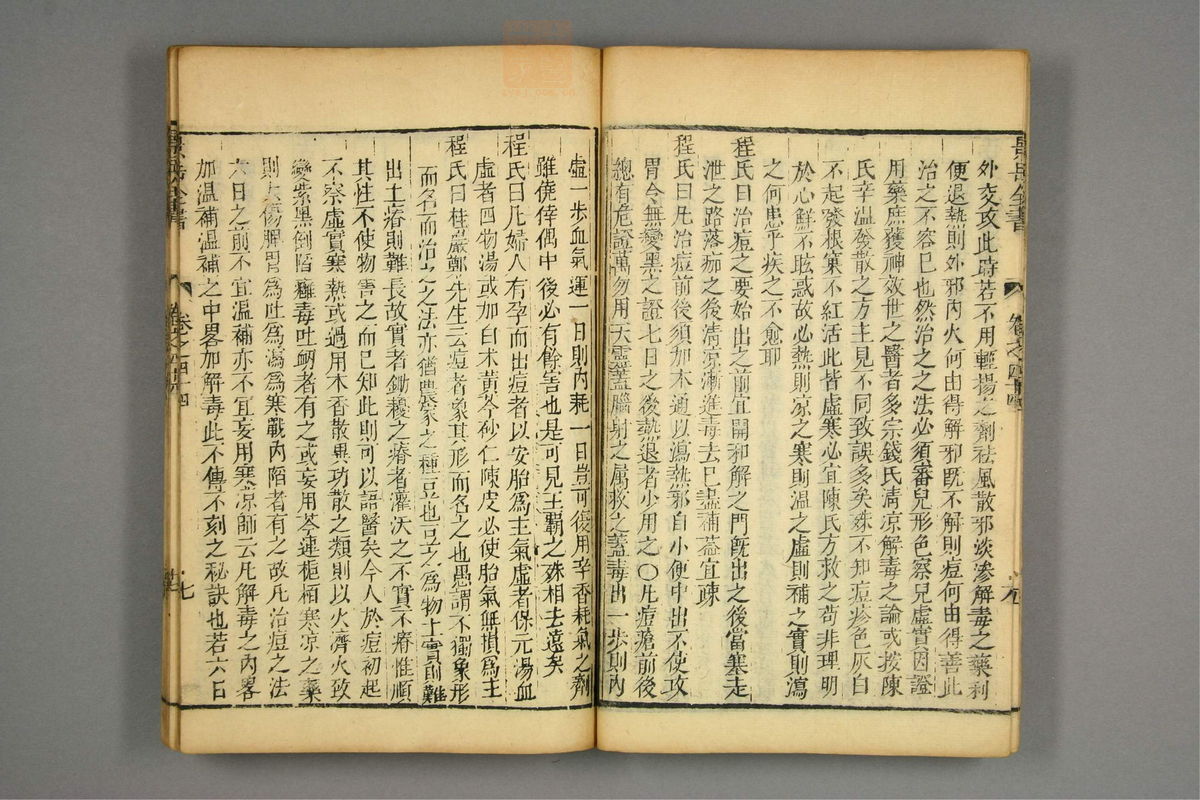 景岳全書
卷之四十四
外交攻此時若不用輕揚之劑祛風散邪淡滲解毒之藥利
便退熱則外邪內火何由得解邪旣不解則痘何由得善此
治之不容巳也然治之之法必須審兒形色察兒虛實因證
用藥庶獲神效世之醫者多宗錢氏淸凉解毒之論或拨陳
氏辛温發散之方主見不同致誤多矣殊不知痘疹色灰白
不起發根窠不紅活此皆虛寒必宜陳氏方救之苟非理明
於心鮮不眩惑故必熱則凉之寒則温之虛則補之實則瀉
之何患乎疾之不愈耶
程氏曰治痘之要始出之前宜開邪解之門旣出之後當寒走
泄之路落痂之後清凉漸進毒去巳盡補益宜疎
程氏曰凡治痘前後須加木通以瀉熱邪自小便中出不使攻
胃令無變黑之證七日之後熱退者少用之○凡痘瘡前後
總有危證萬勿用天靈蓋腦射之屬救之蓋毒出一步則內
虛一步血氣運一日則內耗一日豈可復用辛香耗氣之劑
雖僥倖偶中後必有餘害也是可見王霸之殊相去遠矣
程氏曰凡婦人有孕而出痘者以安胎爲主氣虛者保元湯血
虛者四物湯或加白术黃芩砂仁陳皮必使胎氣無損爲主
程氏曰桂巖鄭先生云痘者象其形而名之也愚謂不獨象形
而名而治之之法亦猶農家之種豆也豆之爲物土實則難
出土瘠則難長故實者鋤耰之瘠者灌沃之不實不瘠惟順
其性不使物害之而已知此則可以語醫矣今人於痘初起
不察虛實寒熱或過用木香散異功散之類則以火濟火致
變紫黑倒陷癰毒吐衂者有之或妄用芩連梔栢寒凉之藥
則大傷脾胃爲吐爲瀉爲寒戰內陷者有之故凡治痘之法
六日之前不宜温補亦不宜妄用寒凉師云凡解毒之內畧
加温補温補之中畧加解毒此不傳不刻之秘訣也若六日
景岳全書
卷之四十四
七